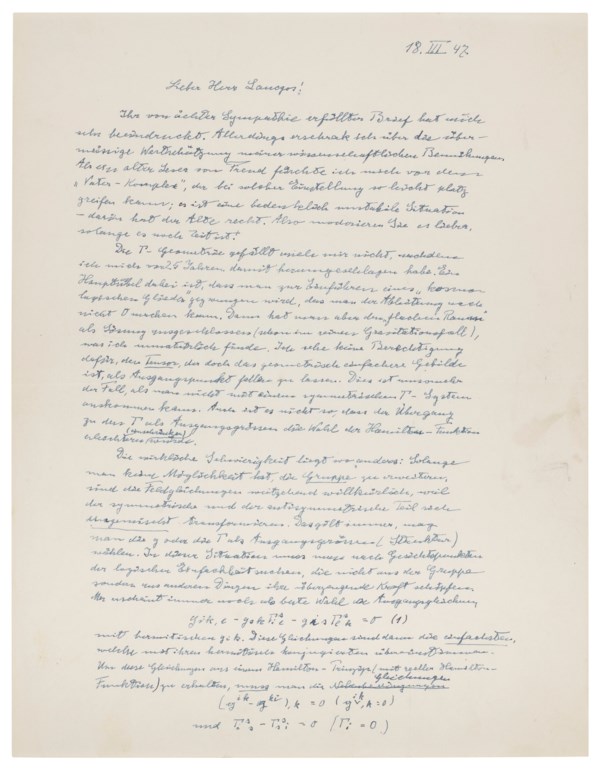 18. III 47.
Lieber Herr Lanczos!
Ihr von ächter Sympathie erfüllter Brief hat mich
sehr beeindruckt. Allerdings erschrak ich über die über-
mässige Wertschätzung meiner wissenschaftlichen Bemühungen.
Als alter Leser von Freud fürchte ich mich vor dem
„Vater-Komplex", der bei solcher Einstellung so leicht platz
greifen kann; es ist eine bedenklich unstabile Situation
– darin hat der Alte recht. Also moderieren Sie es lieber,
solange es noch Zeit ist!
Die Γ-Geometrie gefällt mir nicht, nachdem
ich mich vor 25 Jahren damit herumgeschlagen habe. Ein
Hauptübel dabei ist, dass man zur Einführung eines „kosmo-
logischen Glieds" gezwungen wird, das man der Ableitung nach
nicht 0 machen kann. Dann hat man aber den flachen Raum
als Lösung ausgeschlossen (schon im reinen Gravitationsfall),
was ich unnatürlich finde. Ich sehe keine Berechtigung
dafür, den Tensor, der doch das geometrisch einfachere Gebilde
ist, als Ausgangspunkt fallen zu lassen. Dies ist umsomehr
der Fall, als man nicht mit einem symmetrischen Γ-System
auskommen kann. Auch ist es nicht so, dass der Übergang
zu den Γ als Ausgangsgrössen die Wahl der Hamilton-Funktion
(einschränken)
erleichtern würde.
Die wirkliche Schwierigkeit liegt wo anders: Solange
man keine Möglichkeit hat, die Gruppe zu erweitern,
sind die Feldgleichungen weitgehend willkürlich, weil
der symmetrische und der antisymmetrische Teil sich
ungemischt transformieren. Das gilt immer, mag
man die g oder die Γ als Ausgangsgrössen (Struktur)
wählen. In dieser Situation muss man nach Gesichtspunkten
der logischen Einfachheit suchen, die nicht aus der Gruppe
sondern aus anderen Dingen ihre überzeugende Kraft schöpfen.
Mir erscheint immer noch als beste Wahl die Ausgangsgleichung
g_ik,l − g_sk Γ^s_il − g_is Γ^s_lk = 0 (1)
mit hermitischen g_ik. Diese Gleichungen sind dann die einfachsten,
welche mit ihren hermitisch konjugierten übereinstimmen.
Um diese Gleichungen aus einem Hamilton-Prinzip (mit reeller Hamilton-
Gleichungen
Funktion) zu erhalten, muss man die Nebenbedingungen
(g^ik − g^ki),k = 0 (g^ik,k = 0)
und Γ^s_is − Γ^s_si = 0 (Γ_i = 0)